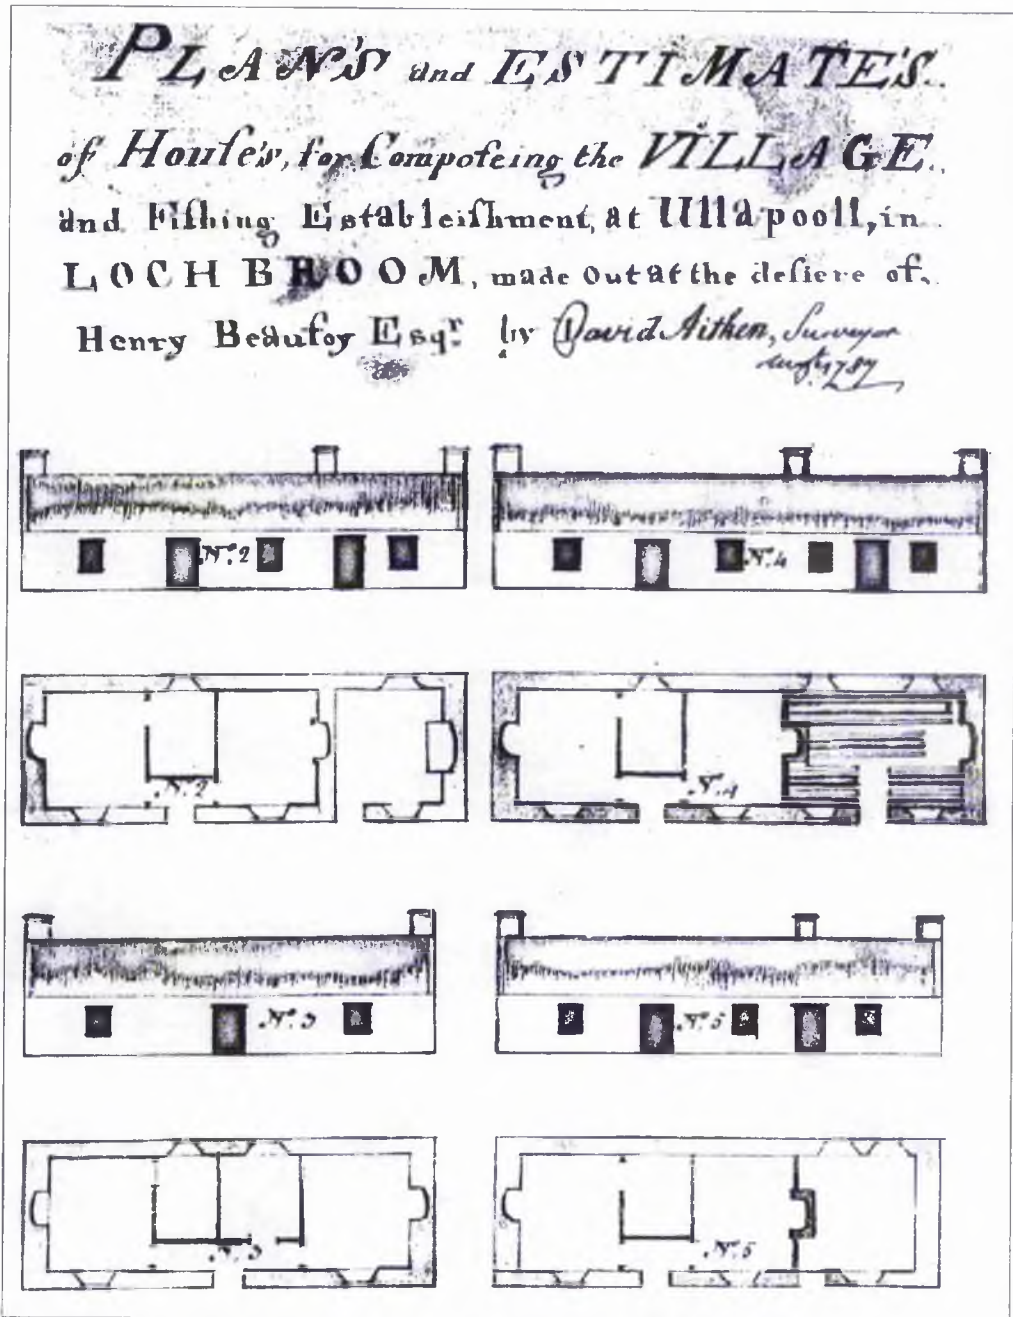 PLAN'S and ESTIMATE'S
of Houſe's, for Compoſeing the VILLAGE
and Fiſhing Estableiſhment, at Ullapooll, in
LOCH BROOM, made out at the deſiere of
Henry Beaufoy Esqr. by David Aitken, Surveyor
Augt. 1787
No. 2
No. 4
No. 2
No. 4
No. 3
No. 5
No. 3
No. 5